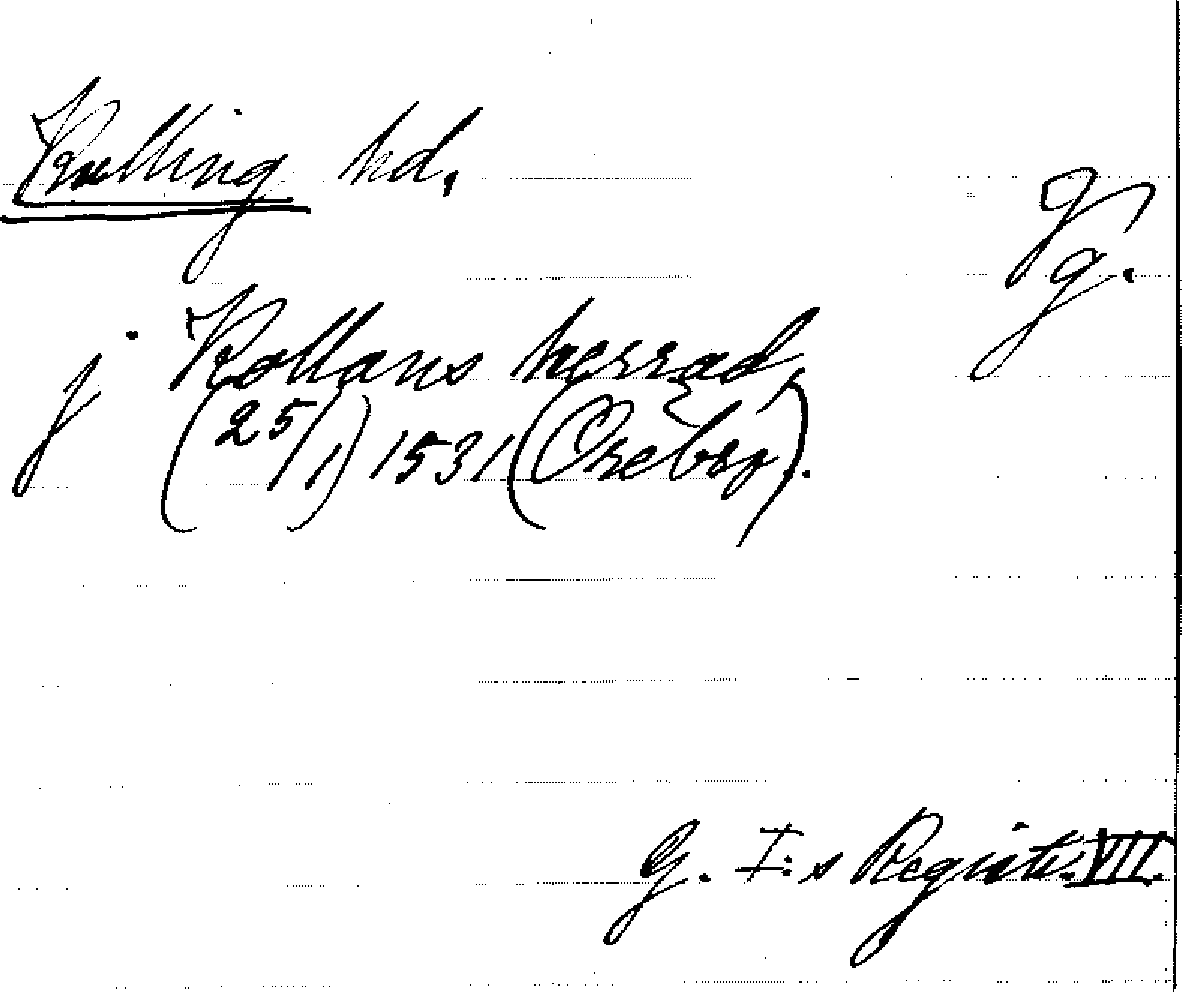 Kulling hd.
Vg.
j Kollans herrad,
(25/1) 1531 (Örebro).
G. I:s Registr. VII.